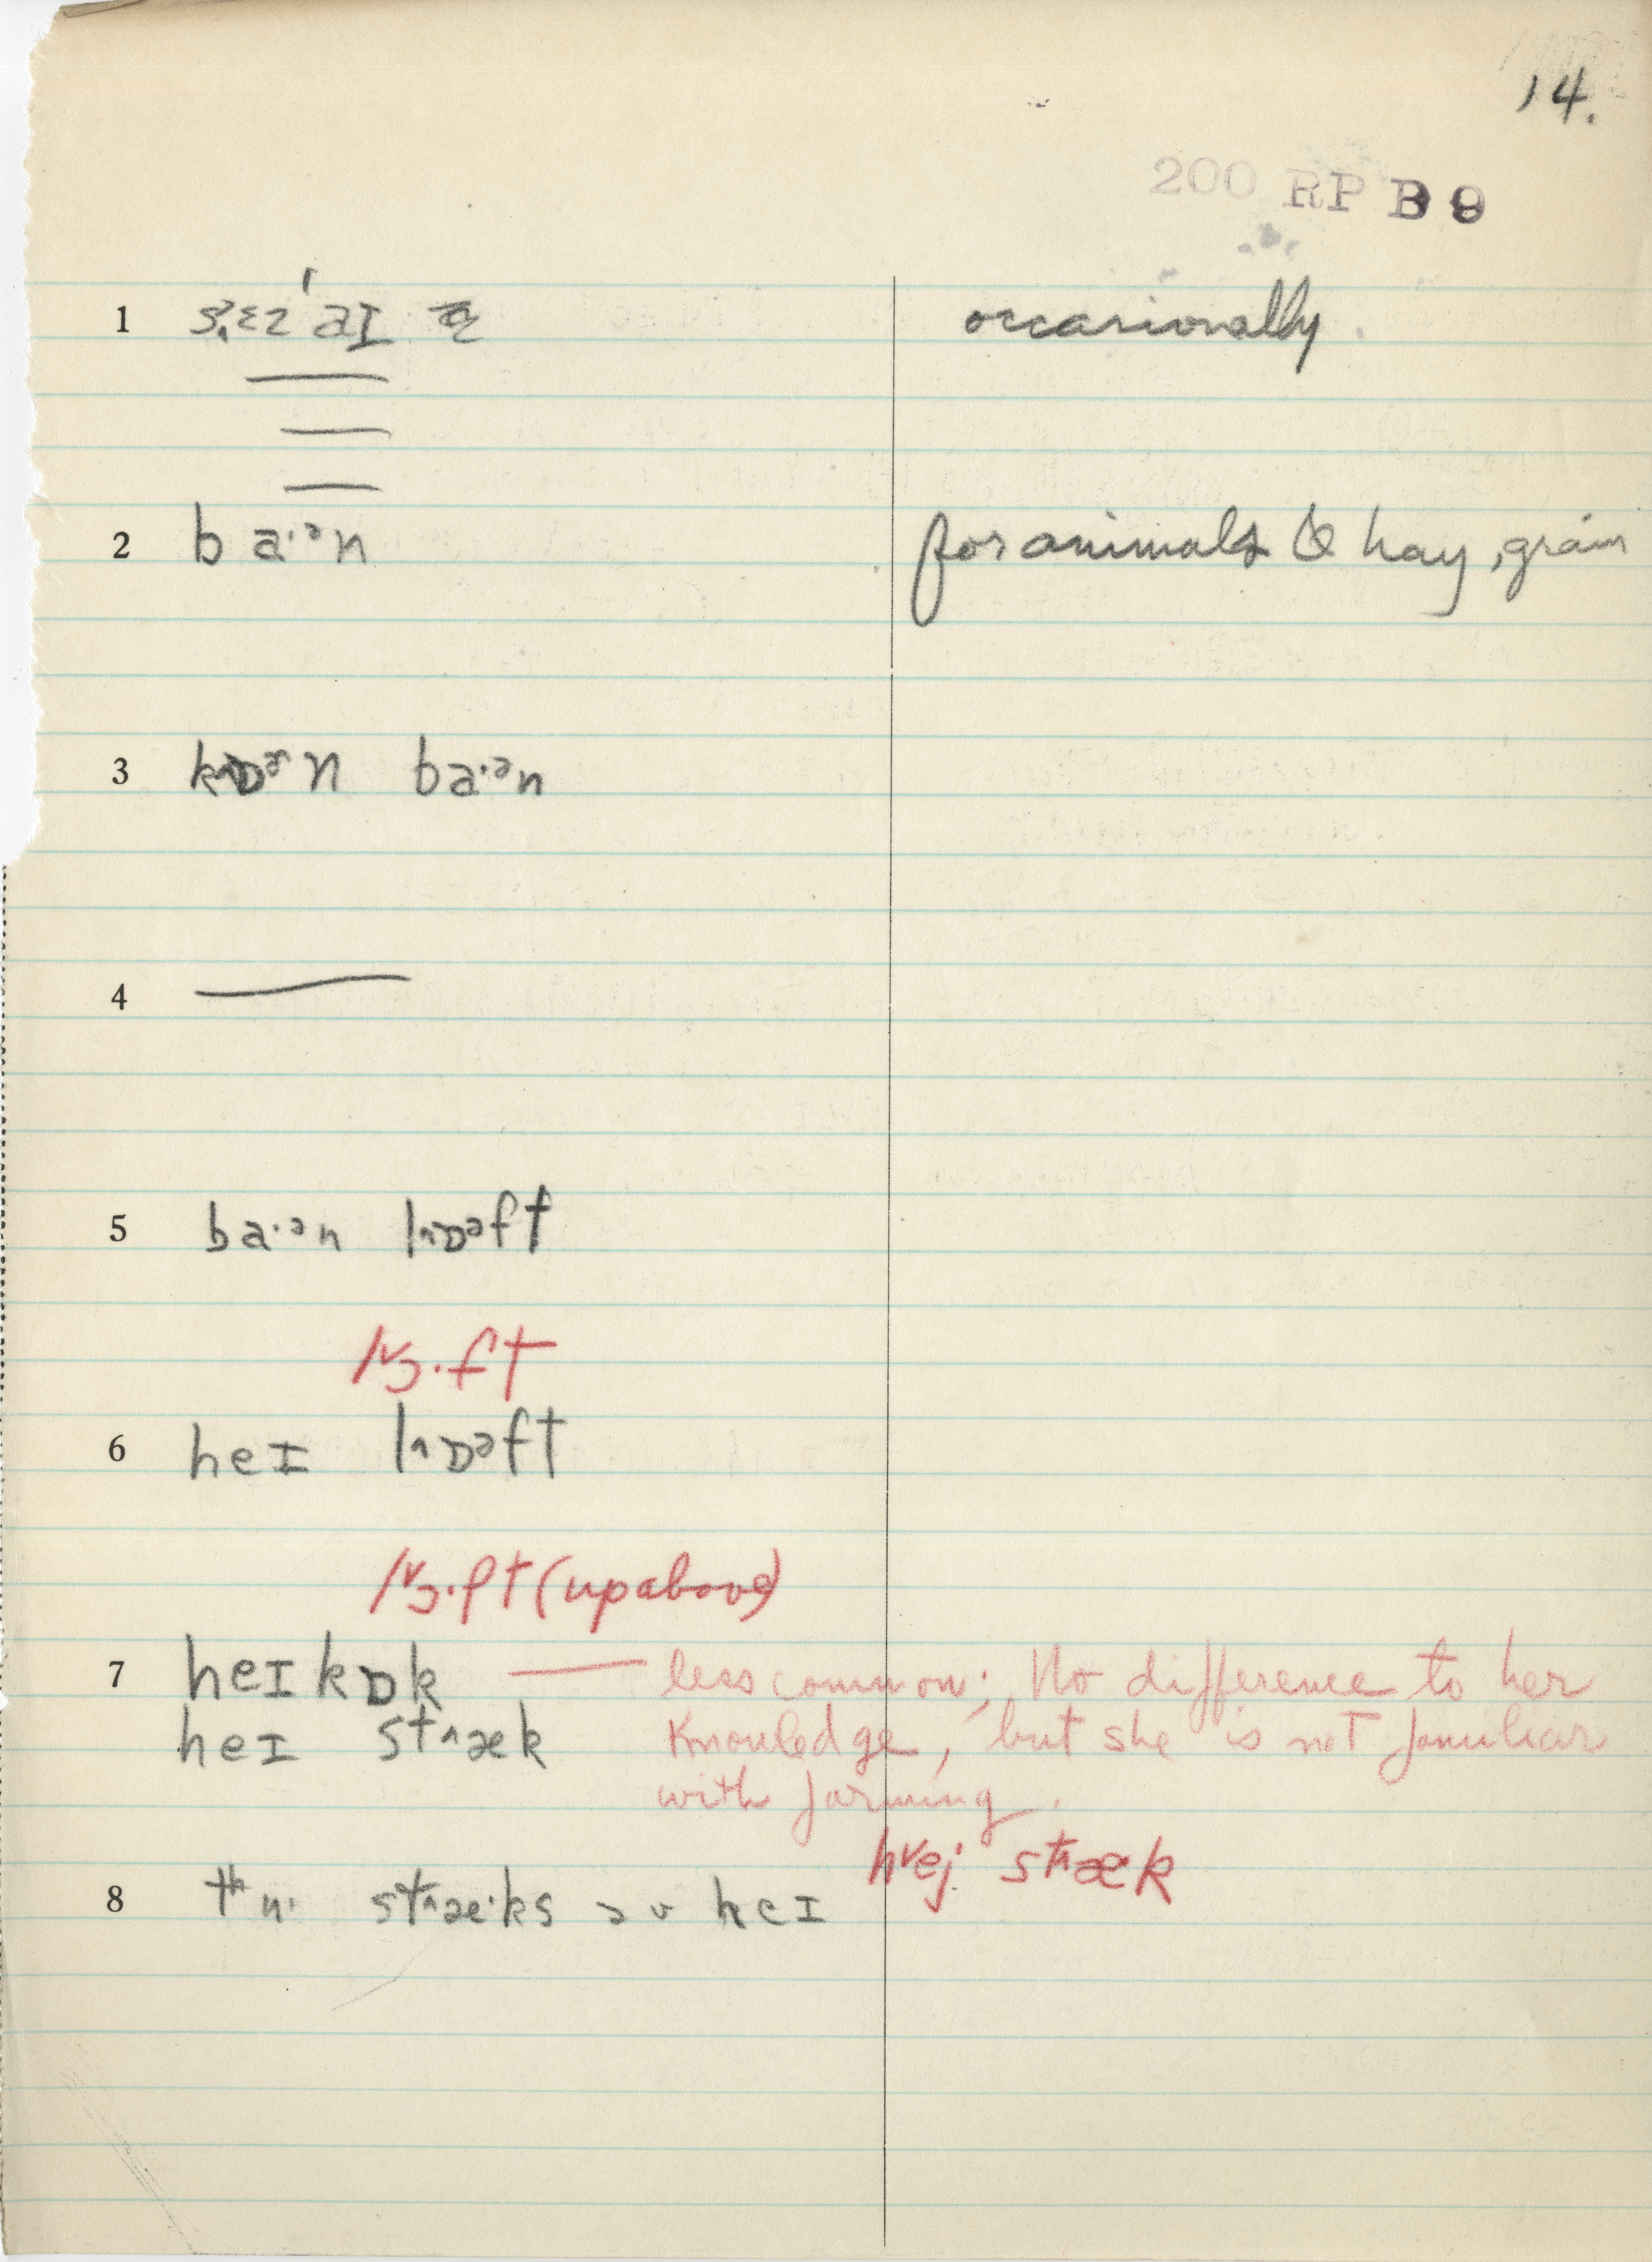 14.
200 RP B 9
1 occasionally
2 ba·ᵊn for animals & hay, grain
3 kɒᵊn ba·ᵊn
4
5 ba·ᵊn lɒᵊft
lɔ·ft
6 heɪ lɒᵊft
lɔ·ft (up above)
7 heɪ kɒk — less common; No difference to her
heɪ stæk knowledge, but she is not familiar
with farming.
hej stæk
8 stæ·ks əv heɪ